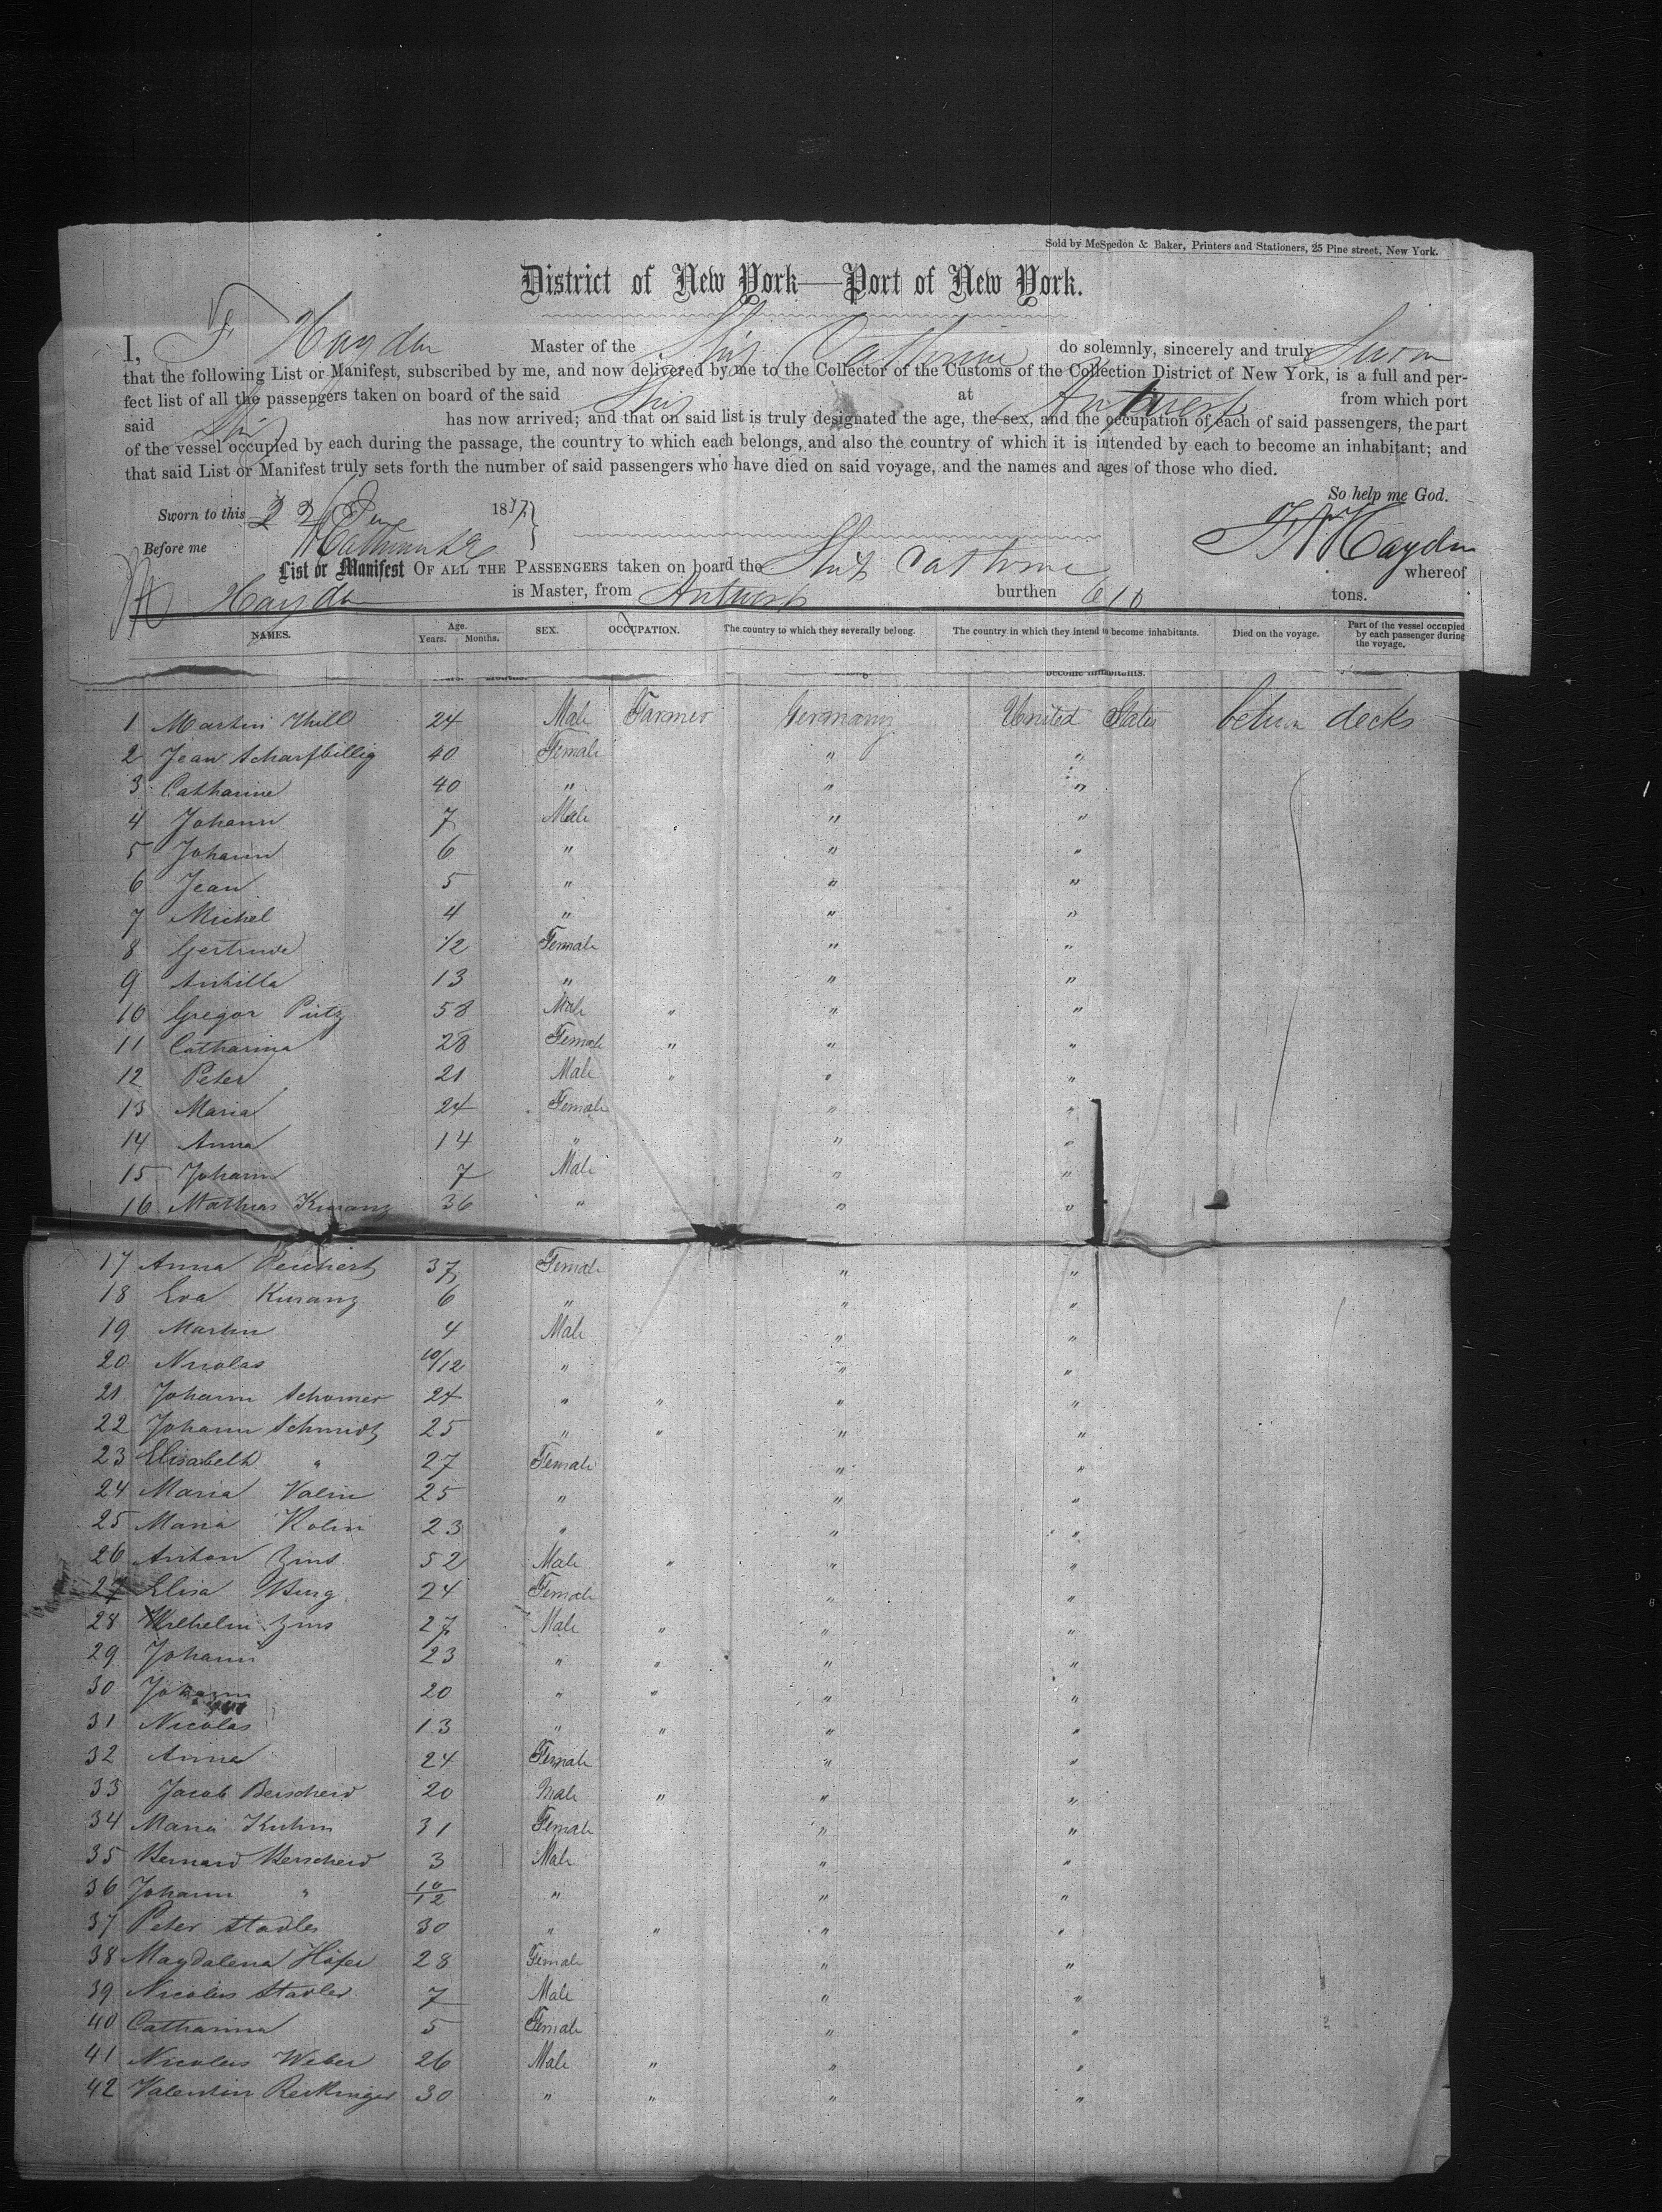 Sold by McSpedon & Baker, Printers and Stationers, 25 Pine street, New York.
District of New York—Port of New York.
I, F Hayden Master of the Ship Catherine do solemnly, sincerely and truly Swear
that the following List or Manifest, subscribed by me, and now delivered by me to the Collector of the Customs of the Collection District of New York, is a full and per-
fect list of all the passengers taken on board of the said Ship at Antwerp from which port
said Ship has now arrived; and that on said list is truly designated the age, the sex, and the occupation of each of said passengers, the part
of the vessel occupied by each during the passage, the country to which each belongs, and also the country of which it is intended by each to become an inhabitant; and
that said List or Manifest truly sets forth the number of said passengers who have died on said voyage, and the names and ages of those who died.
So help me God.
Sworn to this 22 185
Before me
Hayden
List or Manifest OF ALL THE PASSENGERS taken on board the Ship Catherine whereof
Hayden is Master, from Antwerp burthen 610 tons.
NAMES. Age. Years. Months. SEX. OCCUPATION. The country to which they severally belong. The country in which they intend to become inhabitants. Died on the voyage. Part of the vessel occupied by each passenger during the voyage.
become inhabitants.
1 Martin Thill 24 Male Farmer Germany United States betwn decks
2 Jean Scharfbillig 40 Female " "
3 Catharine 40 " " "
4 Johann 7 Male " "
5 Johann 6 " " "
6 Jean 5 " " "
7 Michel 4 " " "
8 Gertrude 1/2 Female " "
9 13 " " "
10 Gregor Pütz 58 Male " " "
11 Catharina 28 Female " " "
12 Peter 21 Male " " "
13 Maria 24 Female " "
14 Anna 14 " " "
15 Johann 7 Male " "
16 Mathias Kurang 36 " " "
17 Anna 37 Female " "
18 Eva Kurang 6 " " "
19 Martin 4 Male " "
20 Nicolas 10/12 " " "
21 Johann Schomer 24 " " " "
22 Johann Schmidt 25 " " " "
23 Elisabeth " 27 Female " "
24 Maria Valin 25 " " "
25 Maria Kolin 23 " " "
26 Anton Zins 52 Male " " "
27 Elisa Burg 24 Female " "
28 Wilhelm Zins 27 Male " " "
29 Johann 23 " " " "
30 Johann 20 " " " "
31 Nicolas 13 " " " "
32 Anna 24 Female " "
33 Jacob Berscheid 20 Male " " "
34 Maria Kuhn 31 Female " "
35 Bernard Berscheid 3 Male " "
36 Johann " 10/12 " " "
37 Peter Stadler 30 " " " "
38 Magdalena Höfer 28 Female " "
39 Nicolas Stadler 7 Male " "
40 Catharina 5 Female " "
41 Nicolas Weber 26 Male " " "
42 Valentin Reckinger 30 " " " "